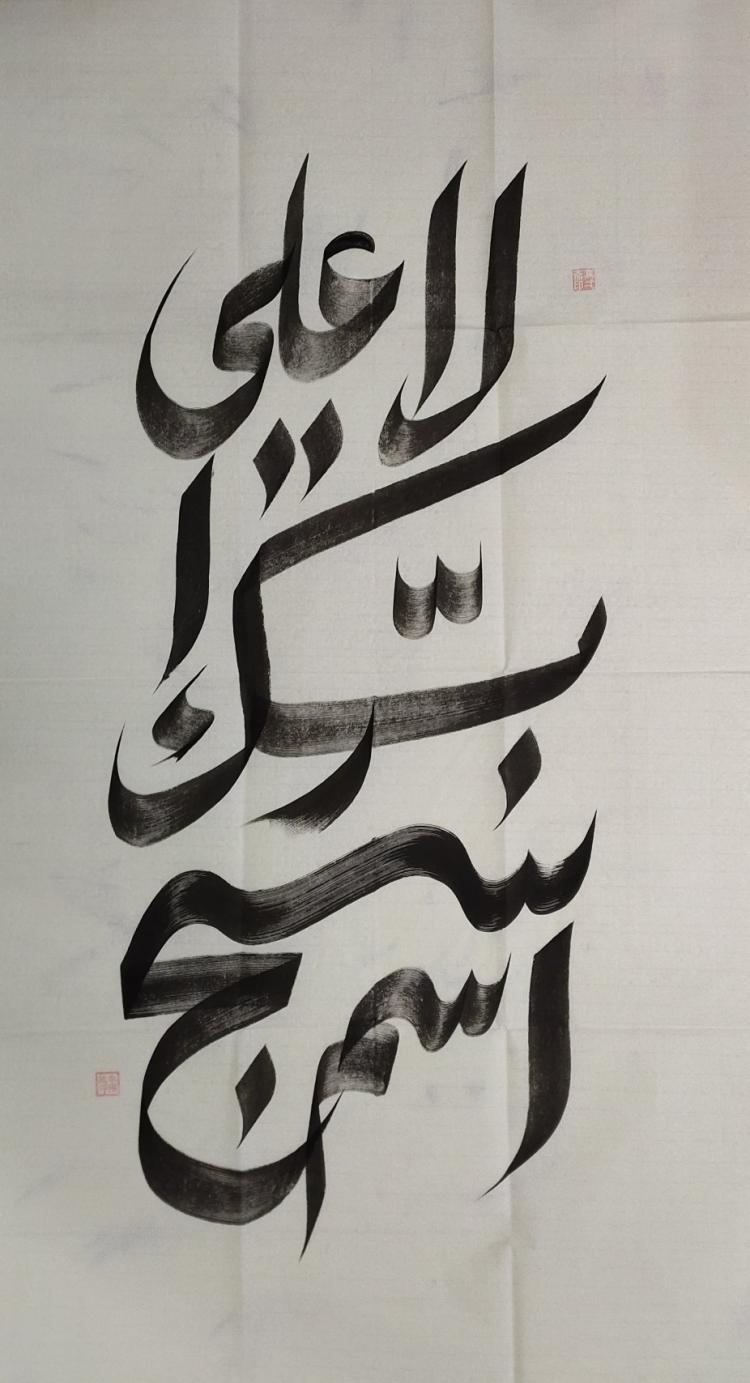 سبح اسم
ربك ا
لاعلى